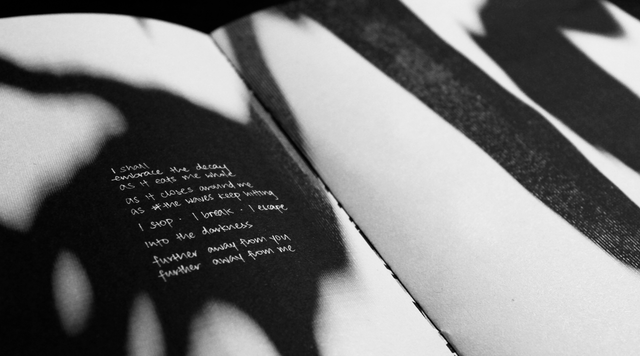 I shall
embrace the decay
as it eats me whole
as it closes around me
as the waves keep hitting
I stop · I break · I escape
into the darkness
further away from you
further away from me